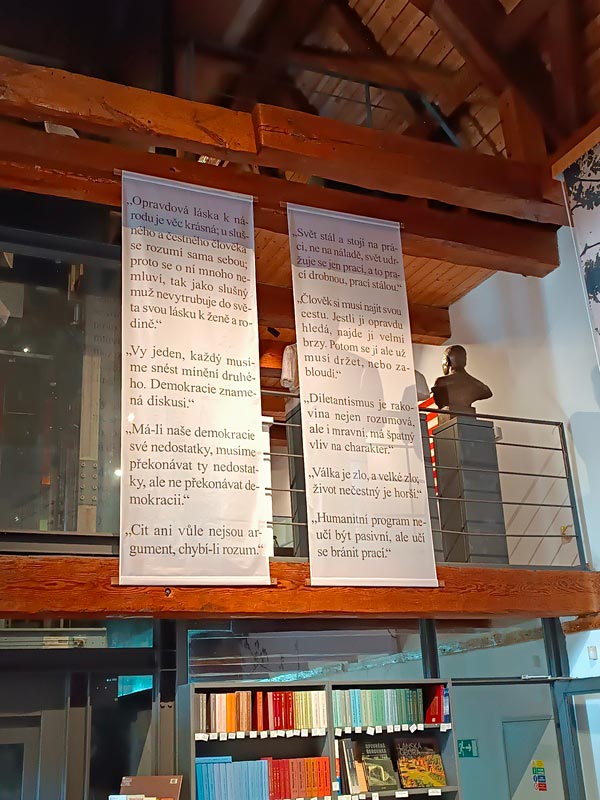 „Opravdová láska k ná-
rodu je věc krásná; u sluš-
ného a čestného člověka
se rozumí sama sebou;
proto se o ní mnoho ne-
mluví, tak jako slušný
muž nevytrubuje do svě-
ta svou lásku k ženě a ro-
dině.“
„Vy jeden, každý musí-
me snést mínění druhé-
ho. Demokracie zname-
ná diskusi.“
„Má-li naše demokracie
své nedostatky, musíme
překonávat ty nedostat-
ky, ale ne překonávat de-
mokracii.“
„Cit ani vůle nejsou ar-
gument, chybí-li rozum.“
„Svět stál a stojí na prá-
ci, ne na náladě, svět udr-
žuje se jen prací, a to pra-
cí drobnou, prací stálou.“
„Člověk si musí najít svou
cestu. Jestli ji opravdu
hledá, najde ji velmi
brzy. Potom se jí ale už
musí držet, nebo za-
bloudí.“
„Diletantismus je rako-
vina nejen rozumová,
ale i mravní, má špatný
vliv na charakter.“
„Válka je zlo, a velké zlo;
život nečestný je horší.“
„Humanitní program ne-
učí být pasivní, ale učí
se bránit prací.“
LÁNSKÁ
OBORA